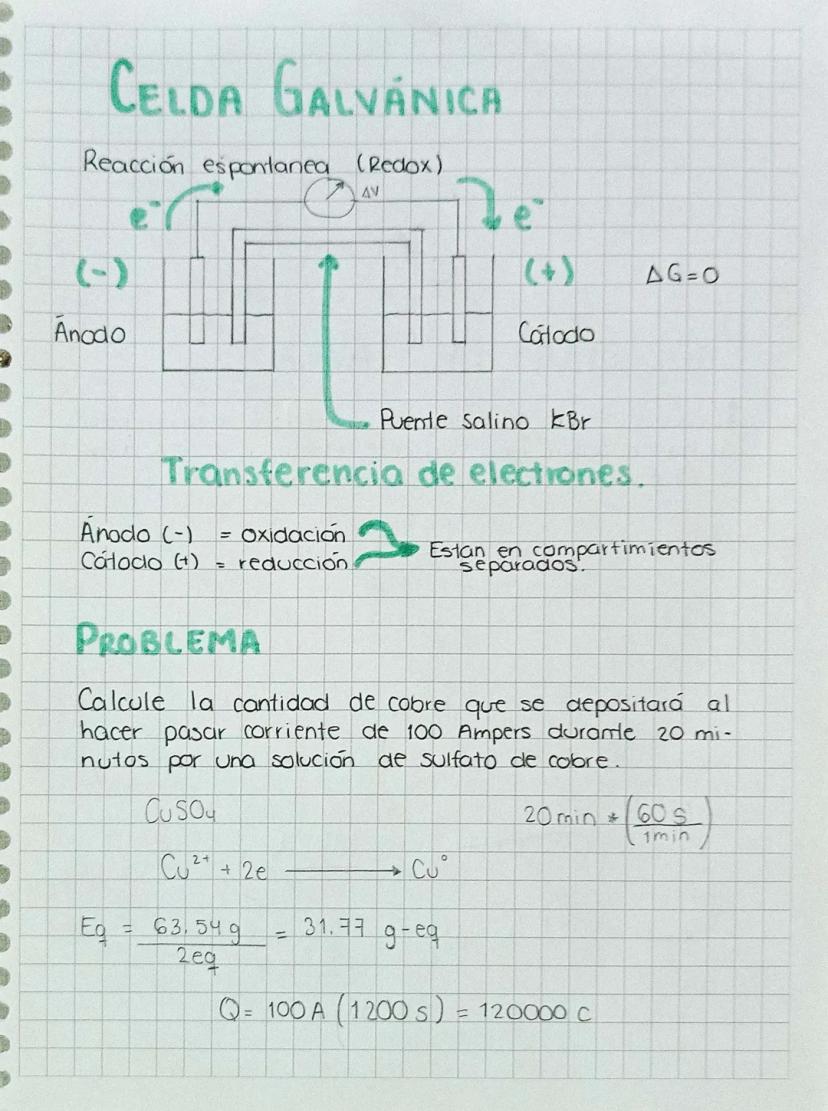 CELDA GALVÁNICA
Reacción espontanea (Redox)
ΔV
e⁻
e⁻
(-)
(+)
ΔG=0
Ánodo
Cátodo
Puente salino KBr
Transferencia de electrones.
Ánodo (-) = oxidación
Cátodo (+) = reducción
Estan en compartimientos
separados.
PROBLEMA
Calcule la cantidad de cobre que se depositará al
hacer pasar corriente de 100 Ampers durante 20 mi-
nutos por una solución de sulfato de cobre.
CuSO₄
20min * (60 s / 1min)
Cu²⁺ + 2e ⟶ Cu°
Eq = 63.54 g / 2eq = 31.77 g-eq
Q = 100A (1200 s) = 120000 C